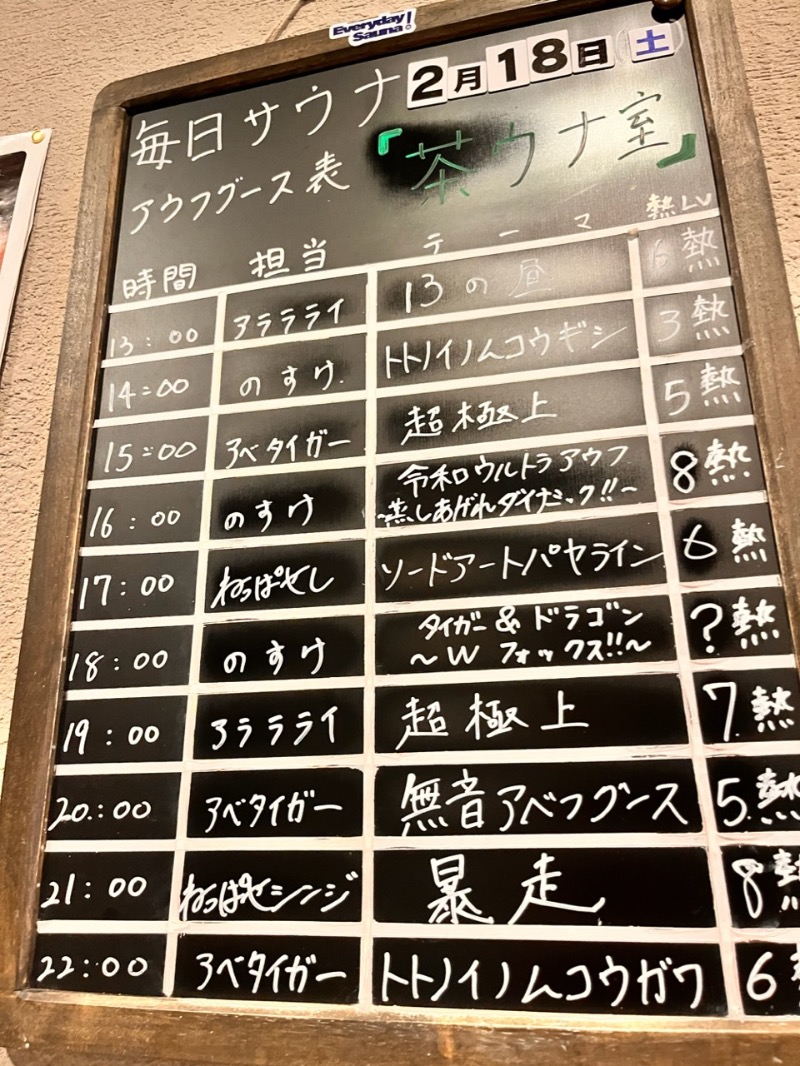 Everyday Sauna!
毎日サウナ 2月18日 土
アウフグース表 『茶ウナ室』
時間 担当 テーマ 熱LV
13:00 アラララライ 13の昼 6熱
14:00 のすけ トトノイノムコウギシ 3熱
15:00 アベタイガー 超極上 5熱
16:00 のすけ 令和ウルトラアウフ
~蒸しあがれダイナミック!!~ 8熱
17:00 ねっぱせし ソードアートパヤライン 6熱
18:00 のすけ タイガー&ドラゴン
~W フォックス!!~ ?熱
19:00 アラララライ 超極上 7熱
20:00 アベタイガー 無音アベフグース 5熱
21:00 ねっぱせシンジ 暴走 8熱
22:00 アベタイガー トトノイノムコウガワ 6熱